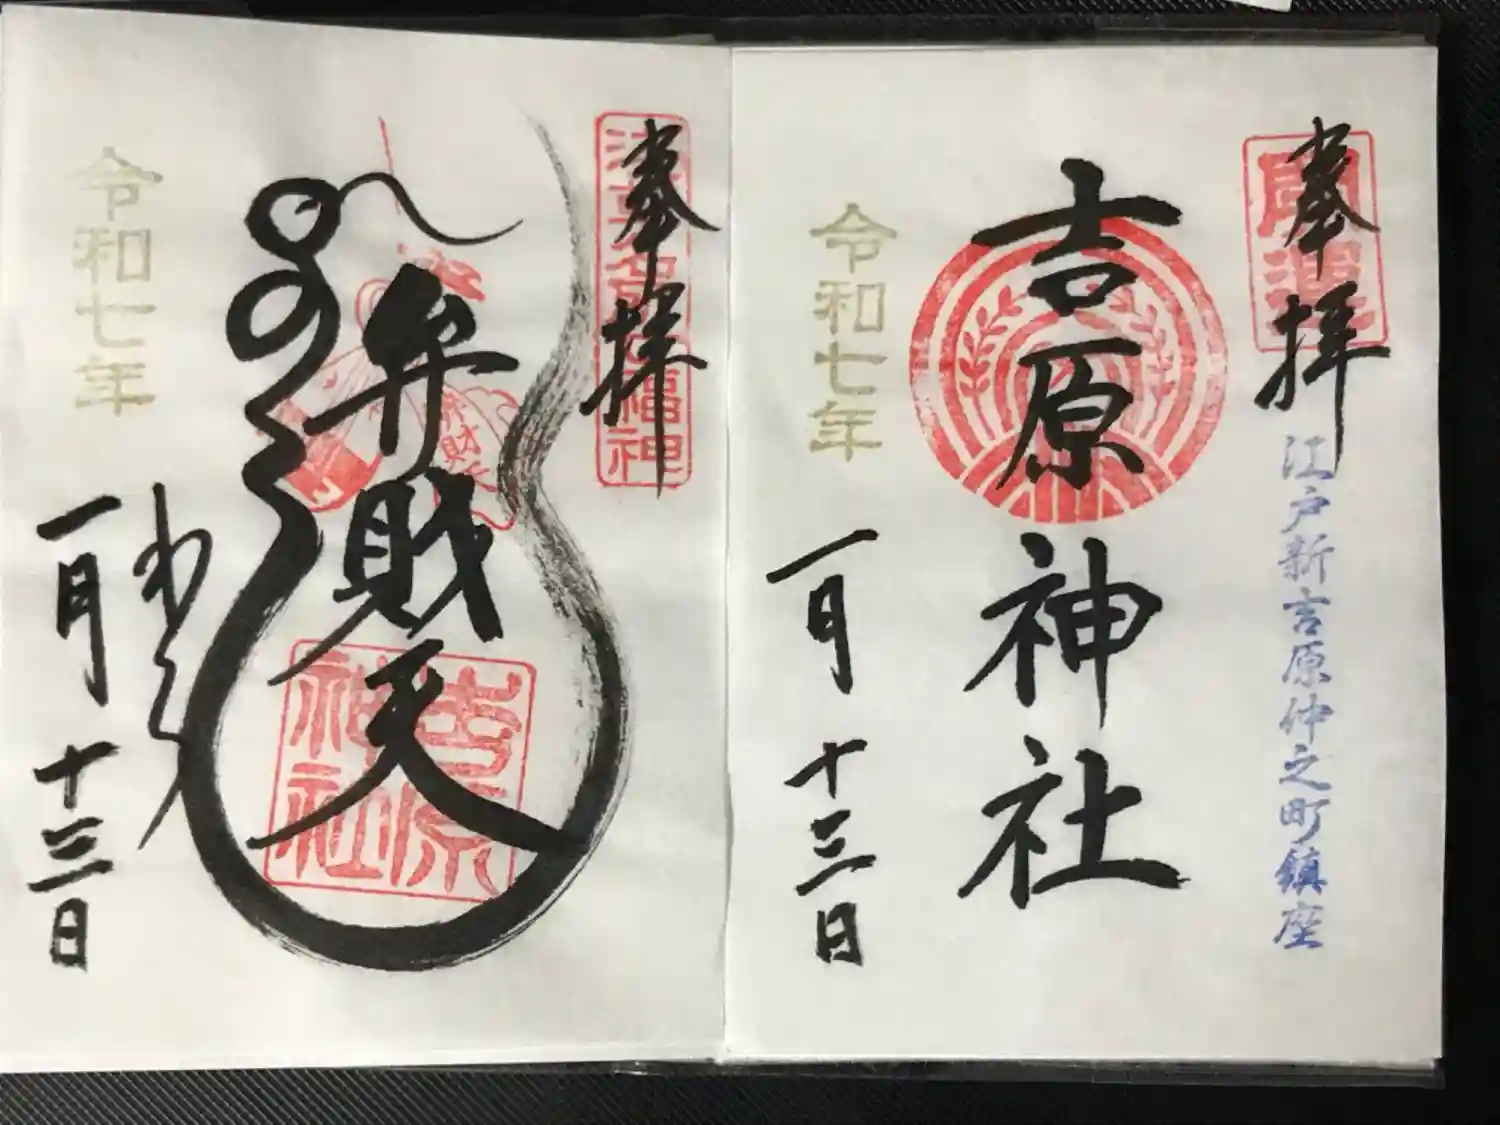 奉拝
開運
江戸新吉原仲之町鎮座
吉原神社
令和七年
一月十三日
奉拝
浅草名所七福神
弁財天
弁財天
吉原神社
令和七年
一月十三日